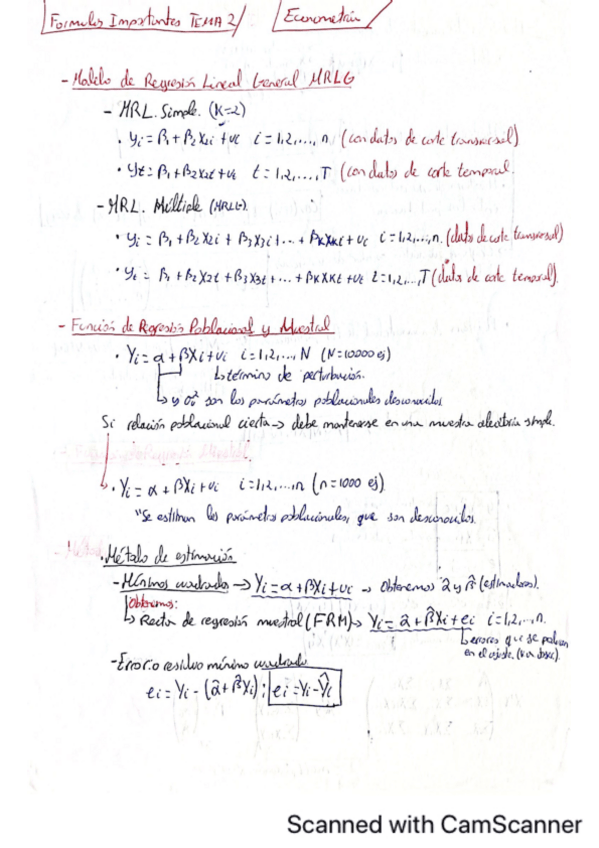 Formulas Importantes TEMA 2/ Econometría
- Modelo de Regresión Lineal General MRLG
- MRL. Simple. (K=2)
• yi = β1 + β2 X2i + ui i = 1,2,..., n (con datos de corte transversal)
• yt = β1 + β2 X2t + ut t = 1,2,...,T (con datos de corte temporal.
- MRL. Múltiple (MRLG).
• yi = β1 + β2 X2i + β3 X3i + ... + βK XKi + ui i = 1,2,...,n. (datos de corte transversal)
• yt = β1 + β2 X2t + β3 X3t + ... + βK XKt + ut t = 1,2,...,T (datos de corte temporal).
- Función de Regresión Poblacional y Muestral
• Yi = α + βXi + ui i = 1,2,..., N (N=10000 ej)
↳ término de perturbación.
↳ y son los parámetros poblacionales desconocidos
Si relación poblacional cierta → debe mantenerse en una muestra aleatoria simple.
↳ • Yi = α + βXi + ui i = 1,2,...,n (n=1000 ej).
"Se estiman los parámetros poblacionales, que son desconocidos.
• Método de estimación
- Mínimos cuadrados → Yi = α + βXi + ui → Obtenemos α̂ y β̂ (estimadores).
Obtenemos:
↳ Recta de regresión muestral (FRM) → Yi = α̂ + β̂Xi + ei i = 1,2,...,n.
↳ errores que se
en el ajuste.
- Error o residuo mínimo cuadrado
ei = Yi - (α̂ + β̂Xi) ; ei = Yi - Ŷi
Scanned with CamScanner